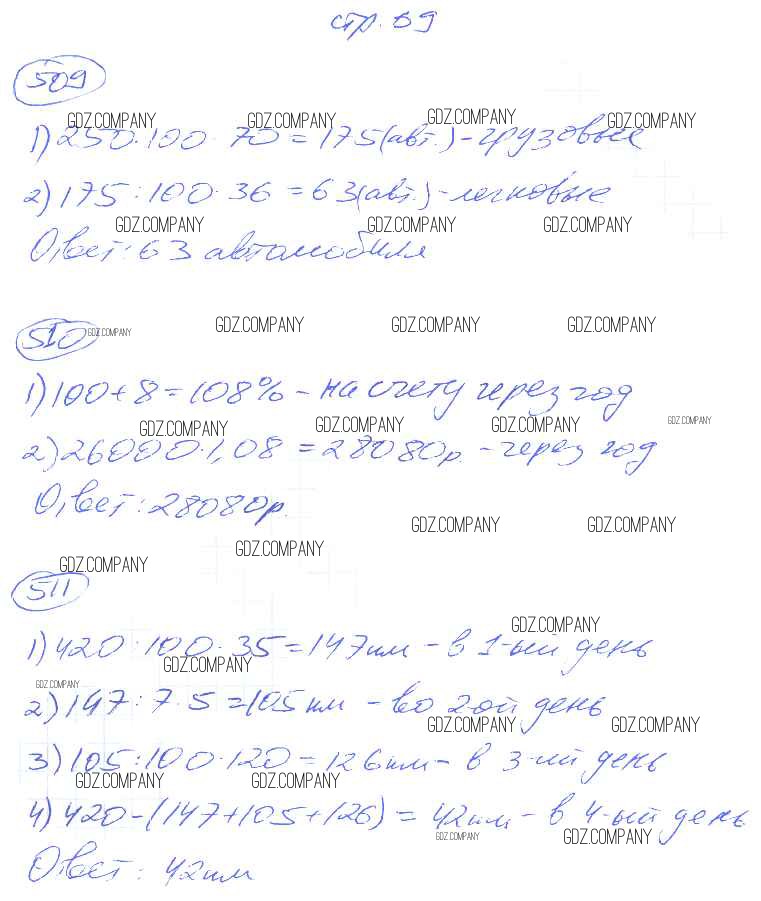 стр. 89
509
GDZ.COMPANY GDZ.COMPANY GDZ.COMPANY GDZ.COMPANY
1) 250:100·70=175(авт.)-грузовые
2) 175:100·36=63(авт.)-легковые
GDZ.COMPANY GDZ.COMPANY GDZ.COMPANY
Ответ: 63 автомобиля
510 GDZ.COMPANY GDZ.COMPANY GDZ.COMPANY GDZ.COMPANY
1) 100+8=108% - на счету через год
GDZ.COMPANY GDZ.COMPANY GDZ.COMPANY GDZ.COMPANY
2) 26000·1,08=28080р. - через год
Ответ: 28080р.
GDZ.COMPANY GDZ.COMPANY
GDZ.COMPANY GDZ.COMPANY
511
GDZ.COMPANY
1) 420:100·35=147км - в 1-ый день
GDZ.COMPANY
GDZ.COMPANY
2) 147:7·5=105км - во 2ой день
GDZ.COMPANY GDZ.COMPANY
3) 105:100·120=126км - в 3-ий день
GDZ.COMPANY GDZ.COMPANY
4) 420-(147+105+126)=42км - в 4-ый день
GDZ.COMPANY GDZ.COMPANY
Ответ: 42км